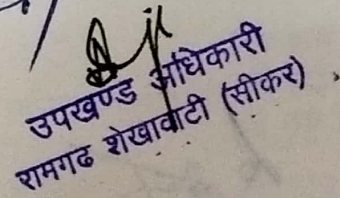 उपखण्ड अधिकारी
रामगढ शेखावाटी (सीकर)